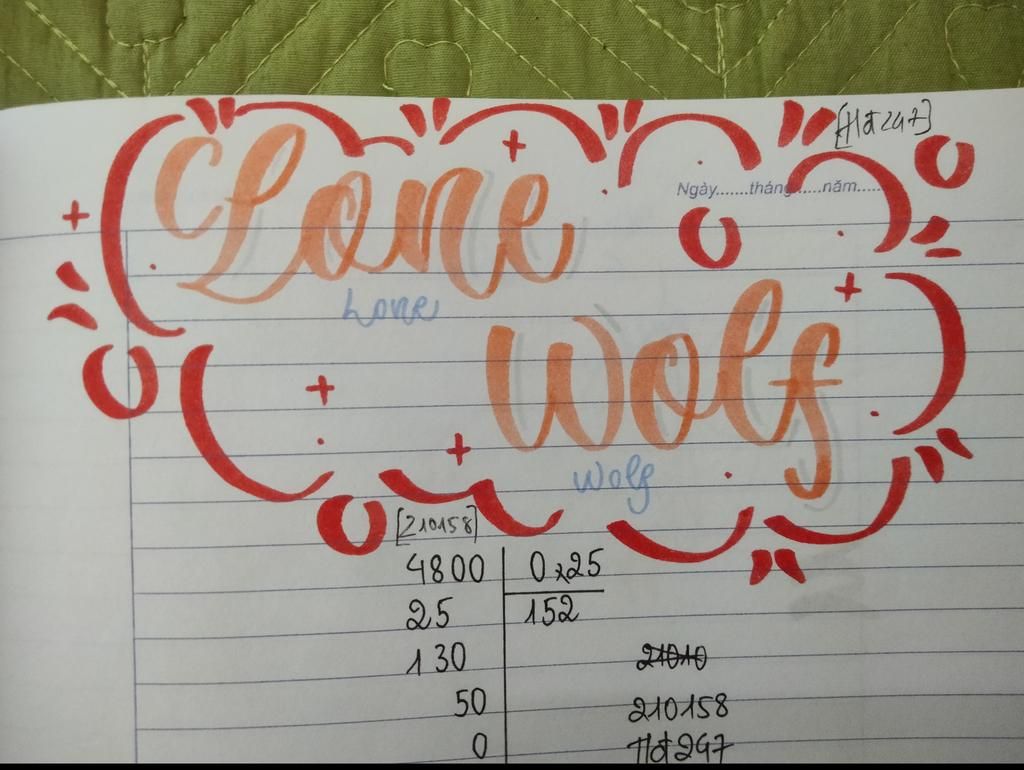 [Hđ247]
Ngày.......tháng.......năm.....
Lone
Lone
Wolf
Wolf
[210158]
4800 0,25
25 152
130
50 210158
0 Hđ247